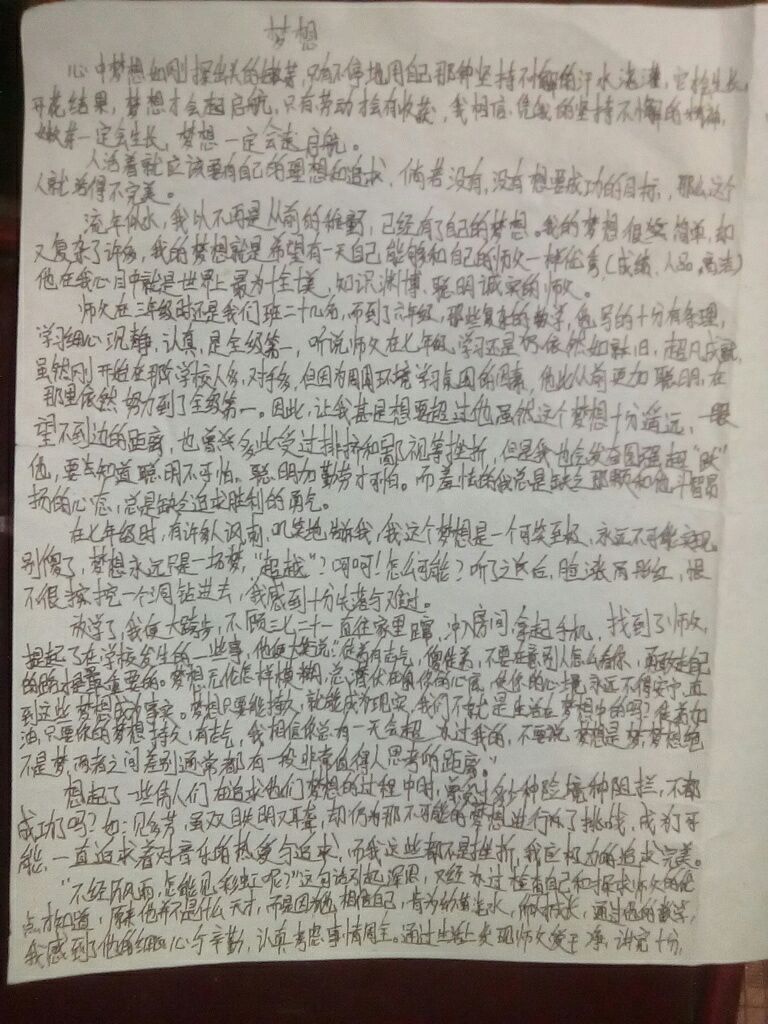 梦想
心中梦想如刚探出头的嫩芽,只有不停地用自己那种坚持不懈的汗水浇灌,它才会生长
开花结果,梦想才会起启航,只有劳动才会有收获,我相信凭我的坚持不懈的精神,
嫩芽一定会生长,梦想一定会起启航。
人活着就应该要有自己的理想和追求,倘若没有,没有想要成功的目标,那么这个
人就活得不完美。
流年似水,我以不再是从前的稚嫩,已经有了自己的梦想。我的梦想很简单,却
又复杂了许多,我的梦想就是希望有一天自己能够和自己的师父一样优秀(成绩、人品、
他在我心目中就是世界上最为十全十美,知识渊博、聪明诚实的师父。
师父在三年级时还是我们班二十几名,而到了六年级,那些复杂的数学,他写的十分有条理,
学习细心沉静,认真,是全级第一,听说师父在七年级学习还是仍依然如旧,超凡成就,
虽然刚开始在那学校人多,对手多,但因为周围环境学习氛围的因素,他比从前更加聪明,在
那里依然努力到了全级第一。因此,让我甚是想要超过他虽然这个梦想十分遥远,一眼
望不到边的距离,也曾许多此受过排挤和鄙视等挫折,但是我也会发奋图强超“跃”
他,要去知道聪明不可怕,聪明加勤劳才可怕。而羞怯的我总是缺乏那颗和他斗智昂
扬的心态,总是缺乏追求胜利的勇气。
在七年级时,有许多人讽刺、叽笑地
我,我这个梦想是一个可笑至极,永远不可能实现。
别傻了,梦想永远只是一场梦,“超越”?呵呵!怎么可能?听了之后,脸涨而彤红,恨
不很
挖一个洞钻进去,我感到十分失落与难过。
放学了,我便大踏步,不顾三七二十一直往家里蹿,冲入房间,拿起手机,找到了师父,
提起了在学校发生的一些事,他便大笑说:“
有志气,
不要在意别人怎么看你,勇敢走自己
的路才是最重要的。梦想无论怎样模糊,总潜伏在我们的心底,使你的心境永远不得安宁,直
到这些梦想成为事实。梦想只要能持久,就能成为现实,我们不就是生活在梦想中的吗?
加
油,只要你的梦想持久,有志气,我相信你总有一天会超
过我的,不要说梦想是梦,梦想绝
不是梦,两者之间差别通常都有一段非常值得人思考的距离。”
想起了一些伟人们在追求他们梦想的过程中时,
多少种险境种阻拦,不都
成功了吗?如:贝多芬,虽双目失明又耳聋,却仍为那不可能的梦想进行了挑战,成为了可
能,一直追求着对音乐的热爱与追求,而我这些都不是挫折,我应极力的追求完美。
“不经历风雨,怎能见彩虹呢?”这句话引起深思,又经
过检查自己和探求师父的优
点才知道,原来他并不是什么天才,而是因为他相信自己,肯为
师
成长,通过他的数学,
我感到了他的细心与辛勤,认真考虑事情周全。通过生活上发现师父爱干净,讲究十分,